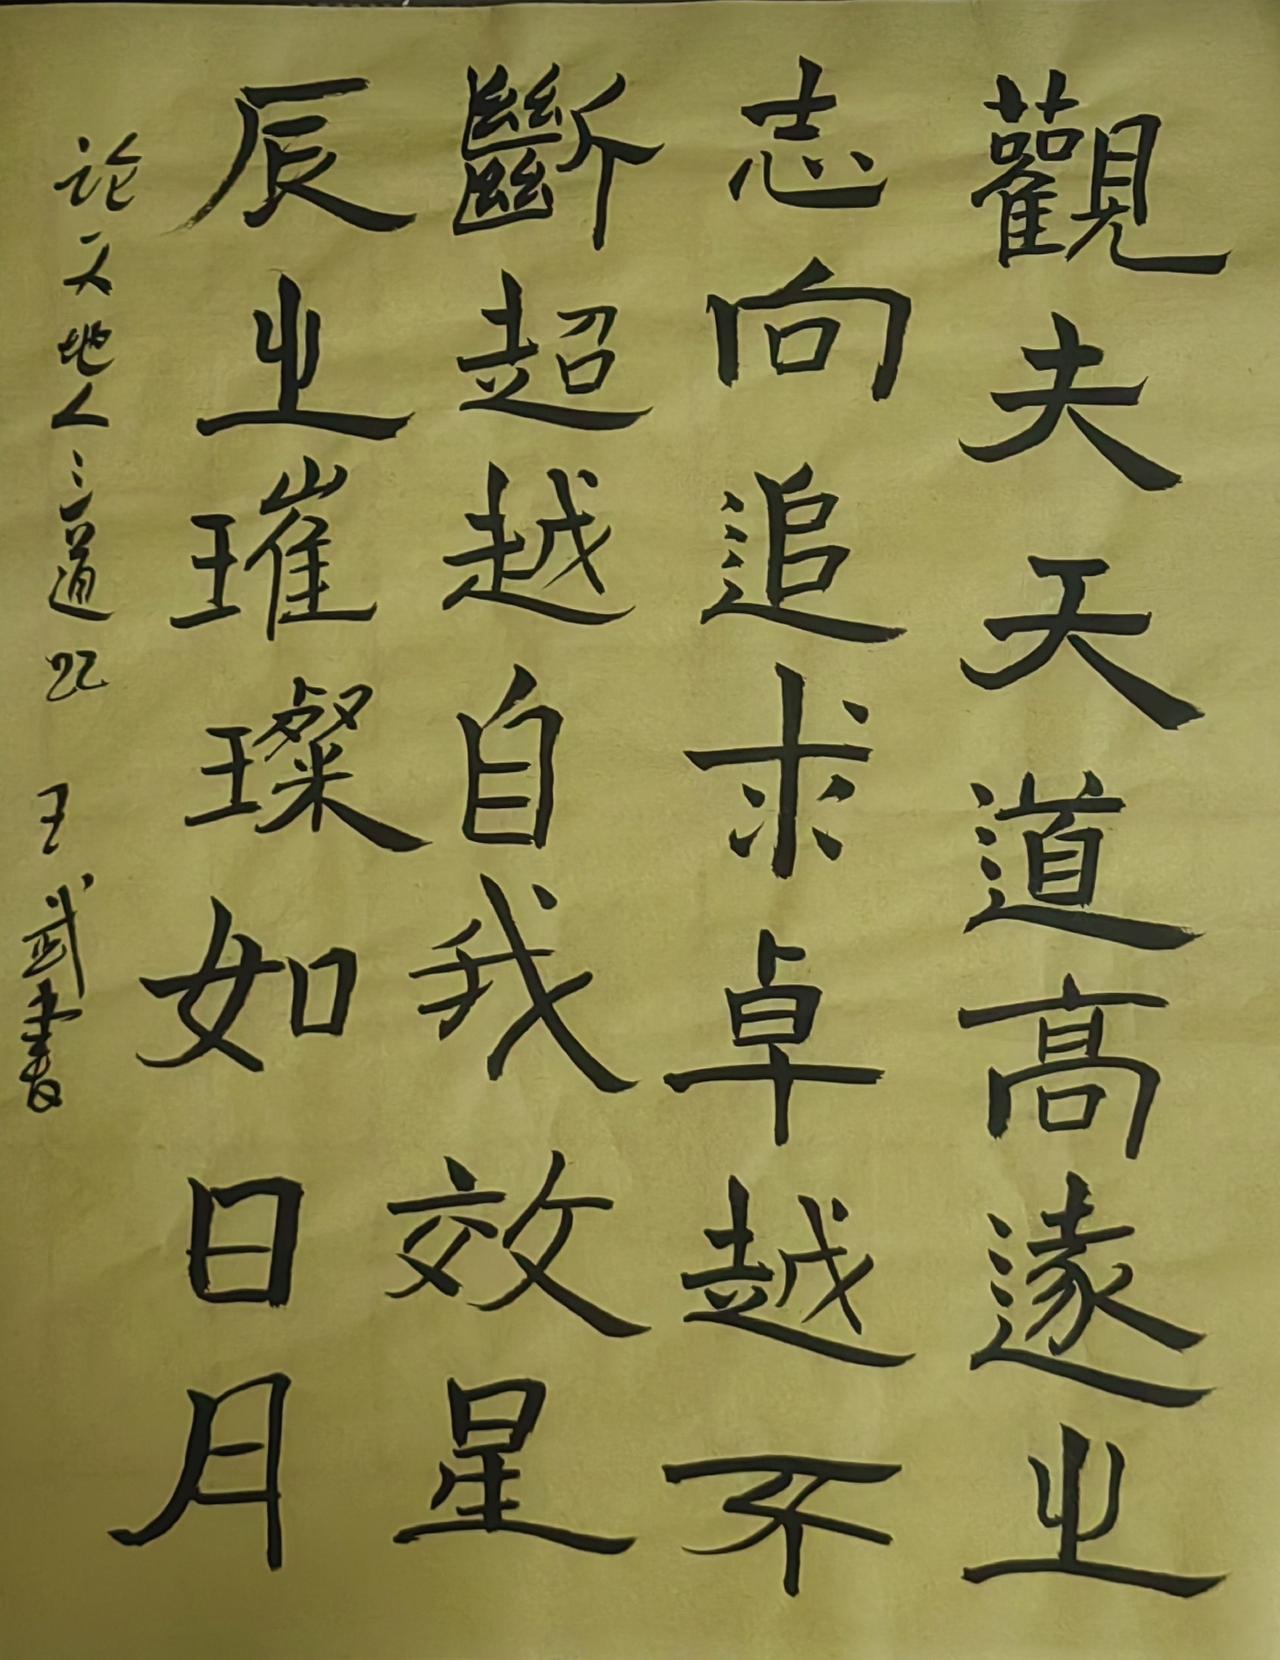 觀夫天道高遠之
志向追求卓越不
斷超越自我效星
辰之璀璨如日月
论天地人之道 王武書